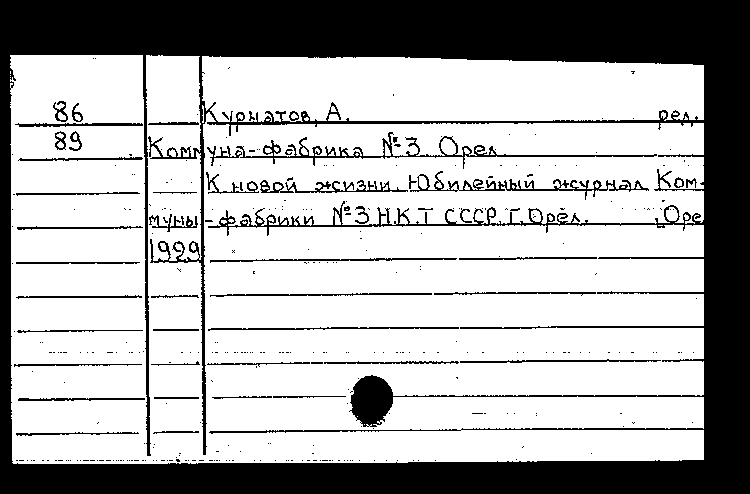 86 Курматов, А. ред.
89 Коммуна-фабрика №3 Орел
К новой жизни. Юбилейный журнал Ком-
муны-фабрики №3 Н.К.Т СССР. Г. Орёл. [Оре
1929